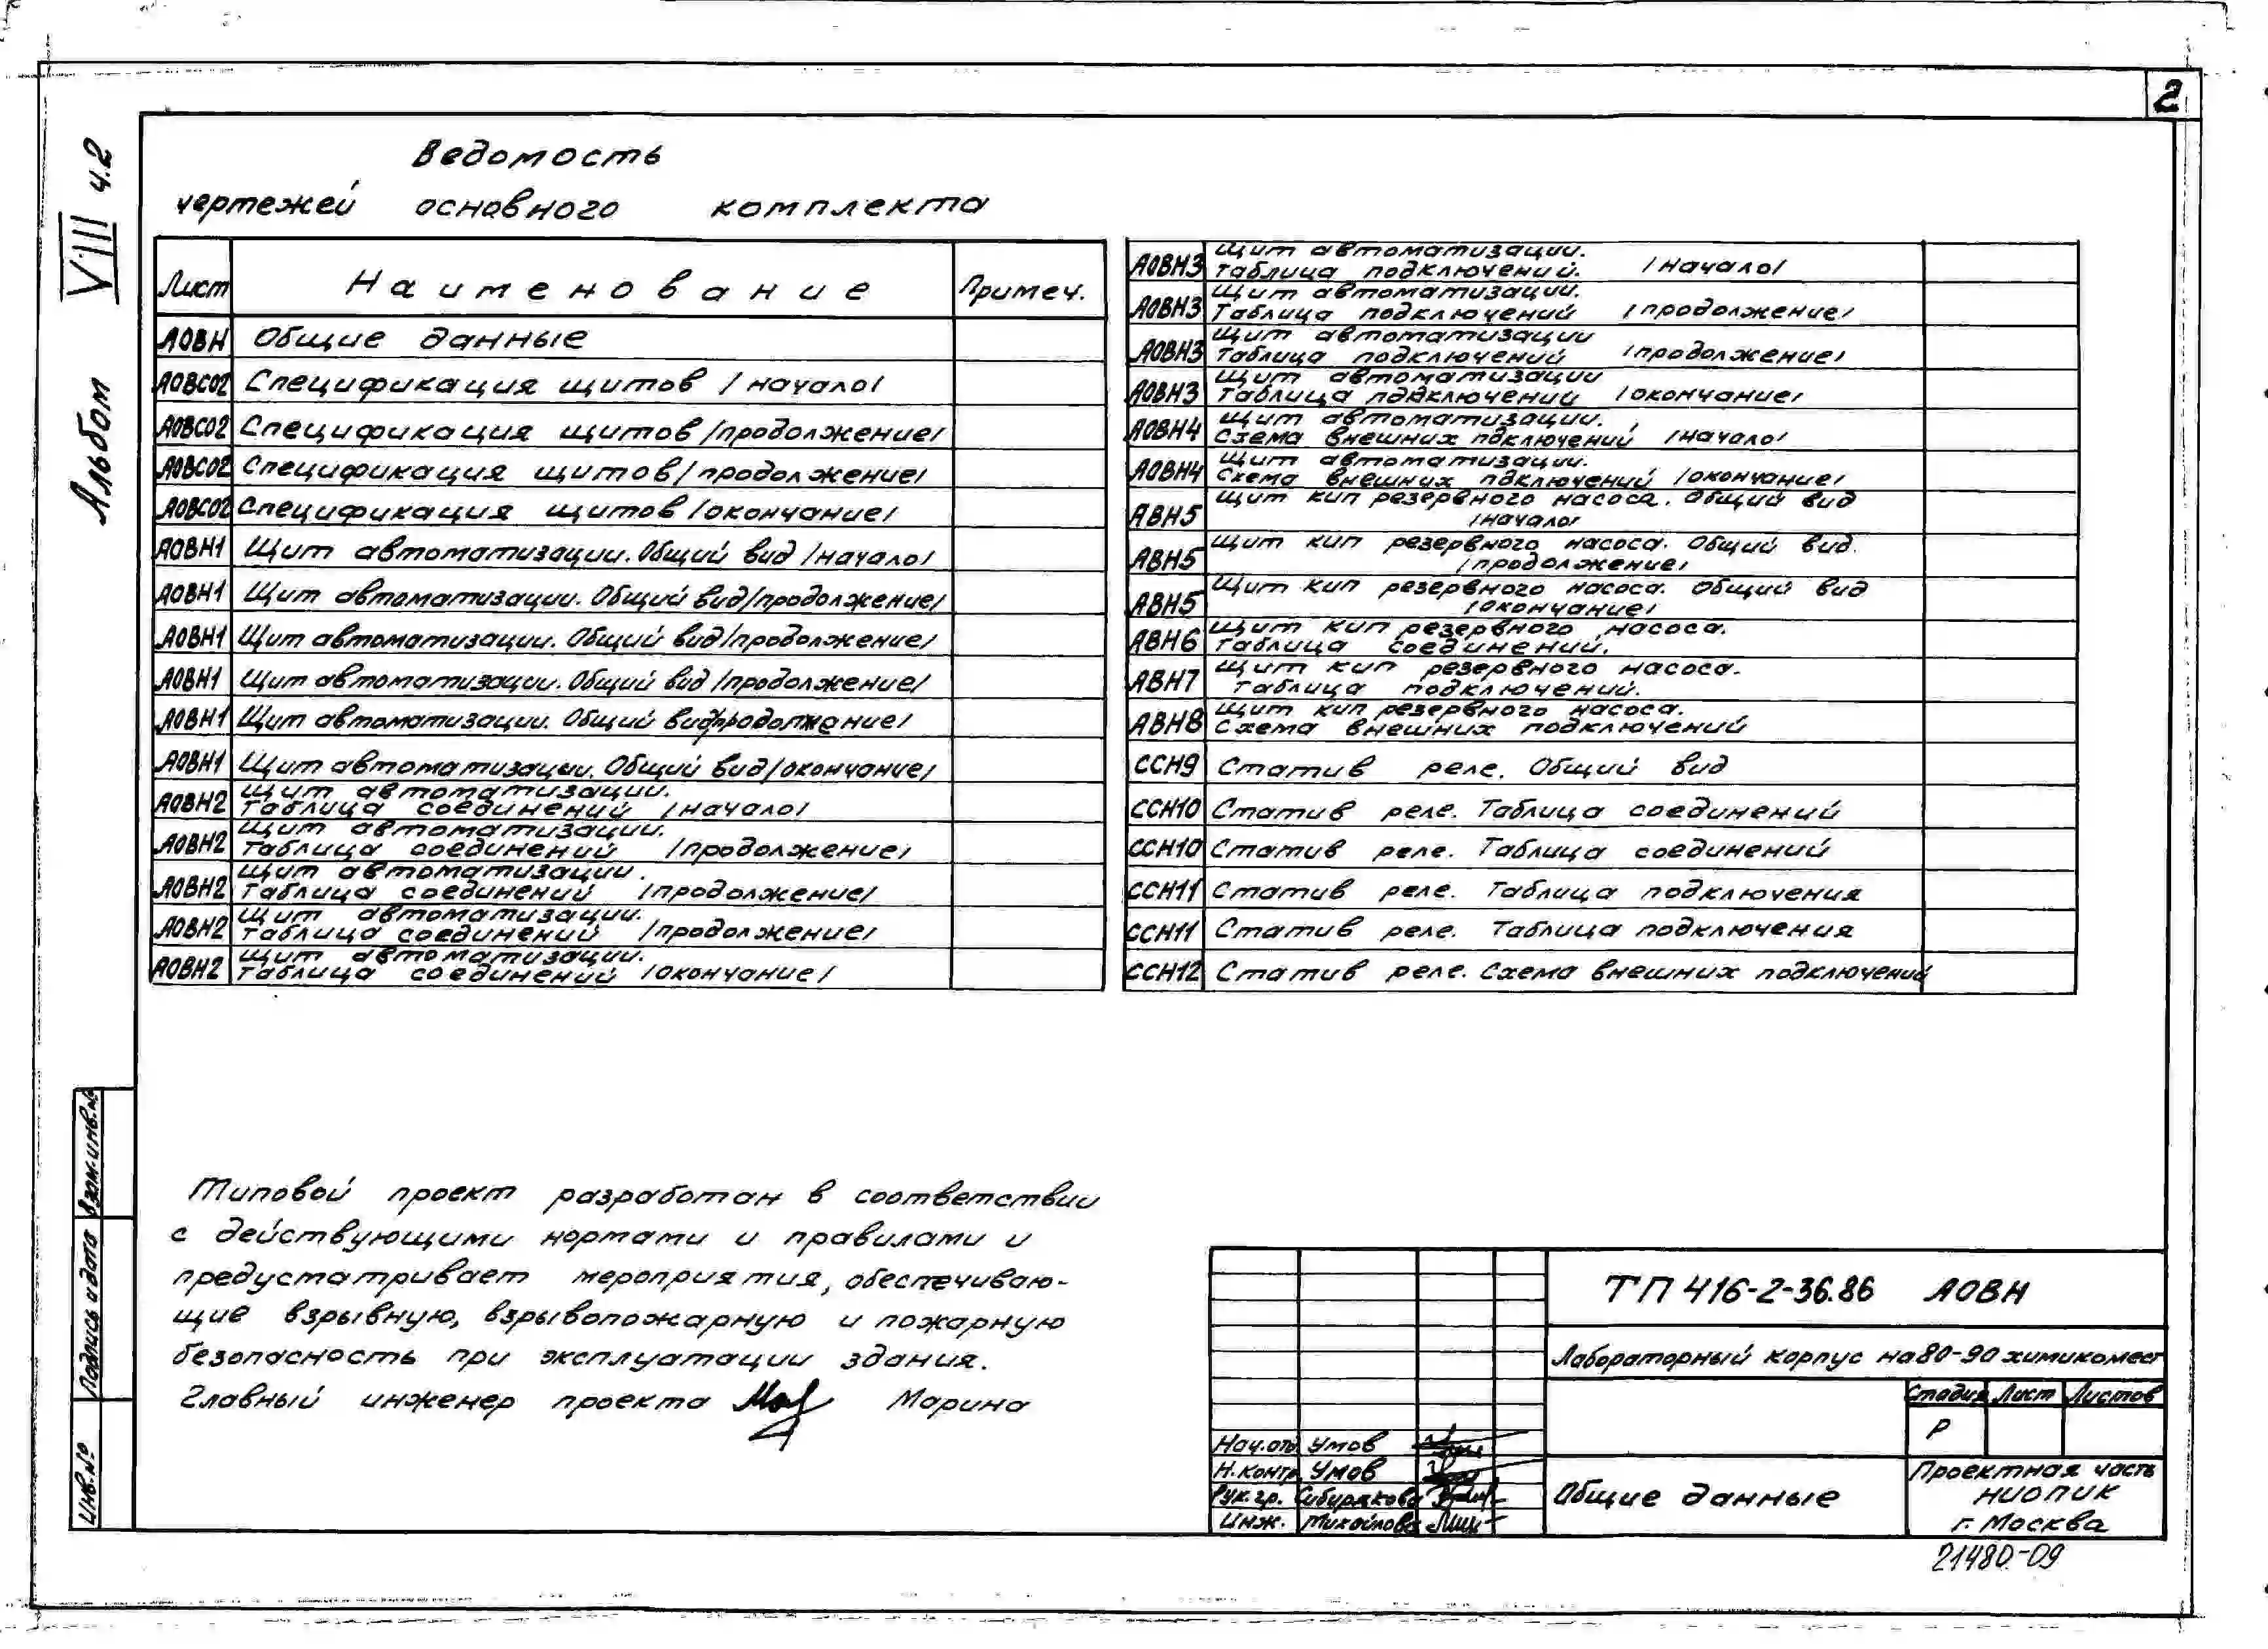 2
Альбом VIII ч.2
Ведомость
чертежей основного комплекта
Лист Наименование Примеч.
АОВН Общие данные
АОВСО2 Спецификация щитов /начало/
АОВСО2 Спецификация щитов /продолжение/
АОВСО2 Спецификация щитов /продолжение/
АОВСО2 Спецификация щитов /окончание/
АОВН1 Щит автоматизации. Общий вид /начало/
АОВН1 Щит автоматизации. Общий вид /продолжение/
АОВН1 Щит автоматизации. Общий вид /продолжение/
АОВН1 Щит автоматизации. Общий вид /продолжение/
АОВН1 Щит автоматизации. Общий вид /продолжение/
АОВН1 Щит автоматизации. Общий вид /окончание/
АОВН2 Щит автоматизации.
Таблица соединений /начало/
АОВН2 Щит автоматизации.
Таблица соединений /продолжение/
АОВН2 Щит автоматизации.
Таблица соединений /продолжение/
АОВН2 Щит автоматизации.
Таблица соединений /продолжение/
АОВН2 Щит автоматизации.
Таблица соединений /окончание/
АОВН3 Щит автоматизации.
Таблица подключений. /начало/
АОВН3 Щит автоматизации.
Таблица подключений /продолжение/
АОВН3 Щит автоматизации
Таблица подключений /продолжение/
АОВН3 Щит автоматизации
Таблица подключений /окончание/
АОВН4 Щит автоматизации.
Схема внешних пдключений /начало/
АОВН4 Щит автоматизации.
Схема внешних пдключений /окончание/
АВН5 Щит кип резервного насоса. Общий вид
/начало/
АВН5 Щит кип резервного насоса. Общий вид.
/продолжение/
АВН5 Щит кип резервного насоса. Общий вид
/окончание/
АВН6 Щит кип резервного насоса.
Таблица соединений.
АВН7 Щит кип резервного насоса.
Таблица подключений.
АВН8 Щит кип резервного насоса.
Схема внешних подключений
ССН9 Статив реле. Общий вид
ССН10 Статив реле. Таблица соединений
ССН10 Статив реле. Таблица соединений
ССН11 Статив реле. Таблица подключения
ССН11 Статив реле. Таблица подключения
ССН12 Статив реле. Схема внешних подключений
Типовой проект разработан в соответствии
с действующими нормами и правилами и
предусматривает мероприятия, обеспечиваю-
щие взрывную, взрывопожарную и пожарную
безопасность при эксплуатации здания.
Главный инженер проекта Марина
Взам.инв.№
Подпись и дата
Инв.№
ТП 416-2-36.86 АОВН
Лабораторный корпус на 80-90 химикомест
Стадия Лист Листов
Р
Нач.отд. Умов
Н.контр. Умов
Рук.гр. Сибирякова
Инж. Михайлова
Общие данные
Проектная часть
НИОПИК
г. Москва
21480-09